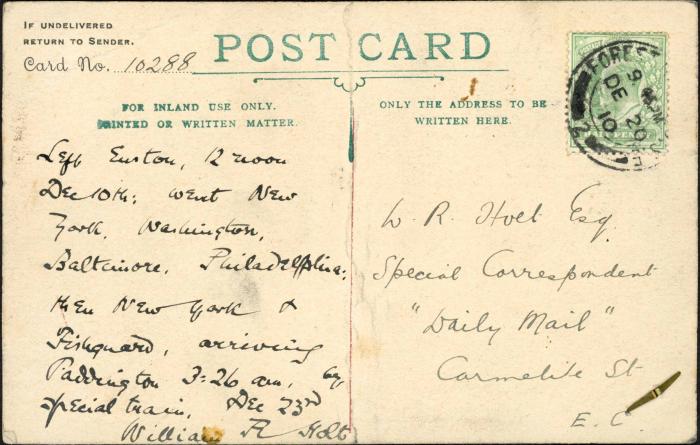 IF UNDELIVERED
RETURN TO SENDER.
Card No. 10288
POST CARD
FOR INLAND USE ONLY.
PRINTED OR WRITTEN MATTER.
ONLY THE ADDRESS TO BE
WRITTEN HERE.
Left Euston, 12 noon
Dec 10th; went New
York, Washington,
Baltimore, Philadelphia;
then New York &
Fishguard, arriving
Paddington 3-26 am, by
special train, Dec 23rd
William R Holt
W. R. Holt Esq
Special Correspondent
"Daily Mail"
Carmelite St
E. C.
FOREST
DE 20
10